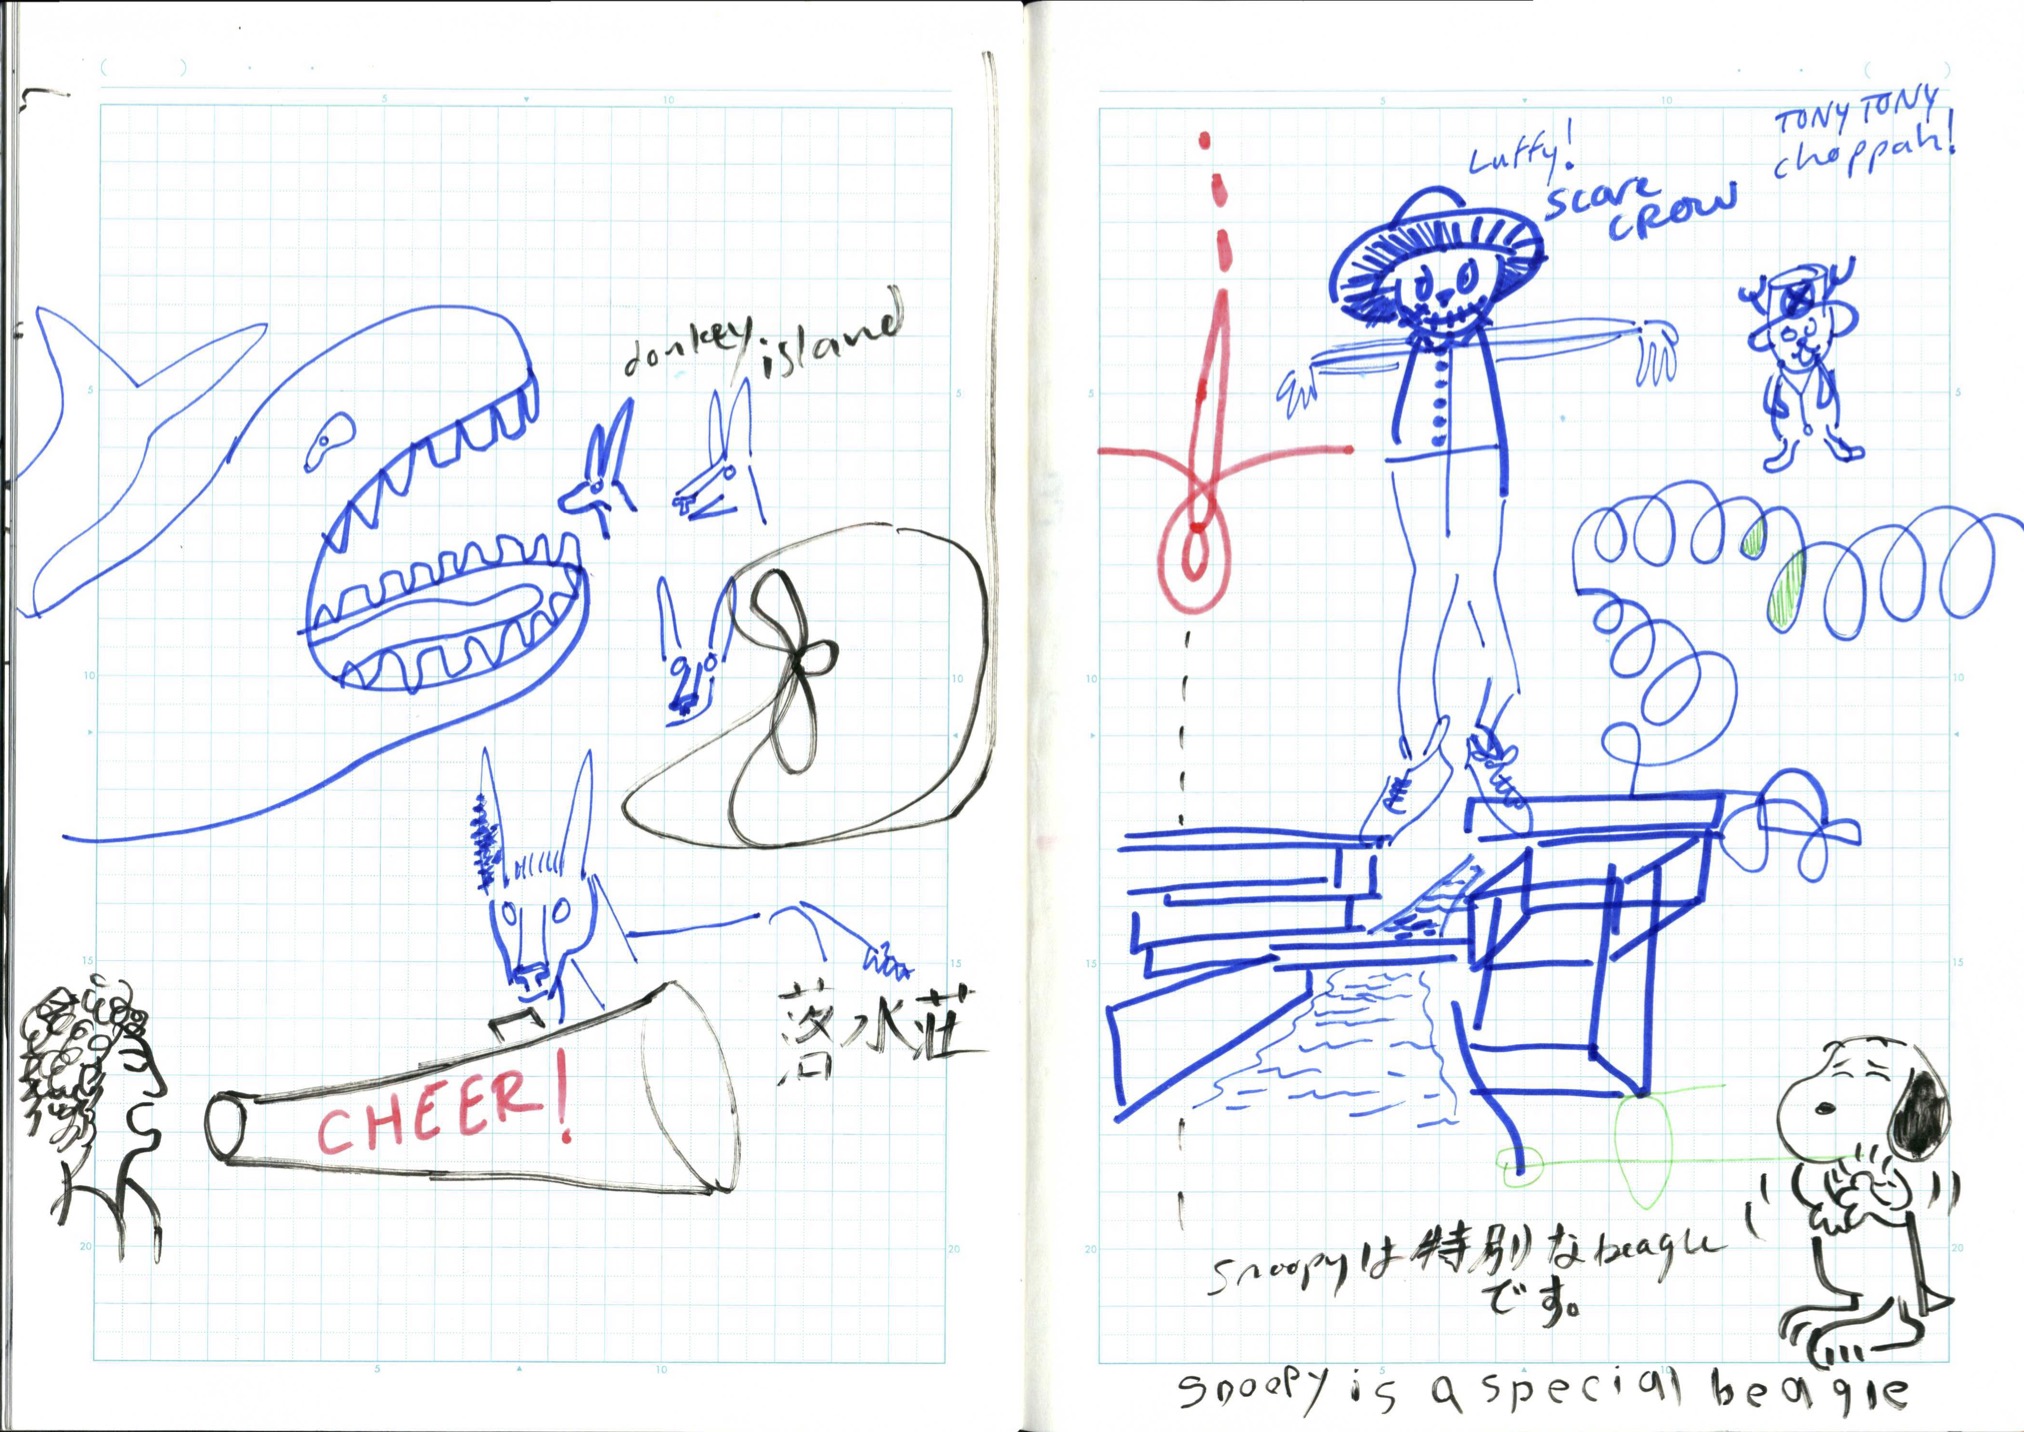 donkey island
CHEER!
落水荘
Luffy!
scare
CROW
TONY TONY
choppah!
snoopyは特別なbeagle
です。
snoopy is a special beagle